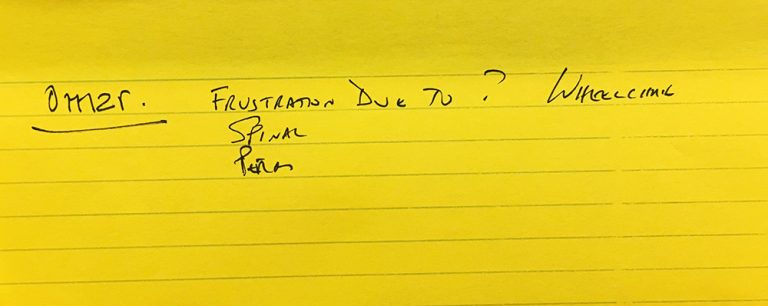 Omar. FRUSTRATION DUE TO ? WHEELCHAIR
SPINAL